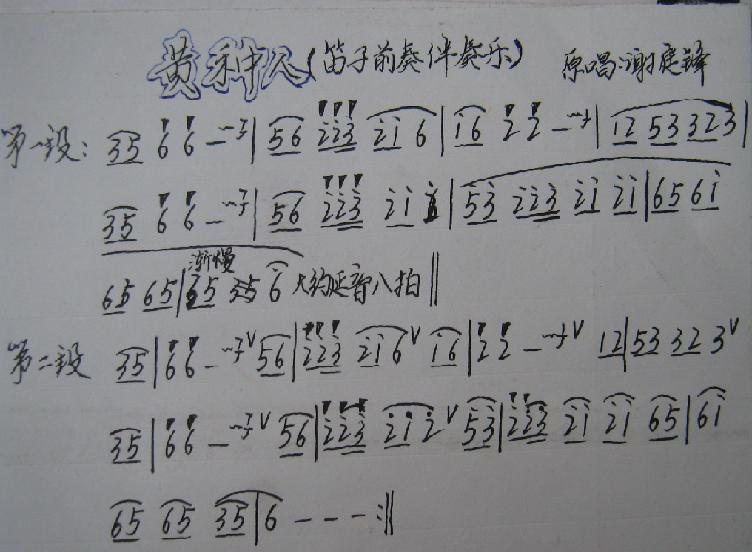 黄种人(笛子前奏伴奏乐) 原唱:谢庭锋
第一段: 35 66 — | 56 223 21 6 | 16 22 — | 12 53 323 |
35 66 — | 56 223 21 | 53 223 21 21 | 65 61
65 65 | 35 35 6 大约延音八拍 ‖
渐慢
第二段 35 | 66 — 56 | 223 216 16 | 22 — 12 | 53 32 3
35 | 66 — 56 | 223 212 53 | 223 21 21 65 | 61
65 65 35 | 6 - - - :‖